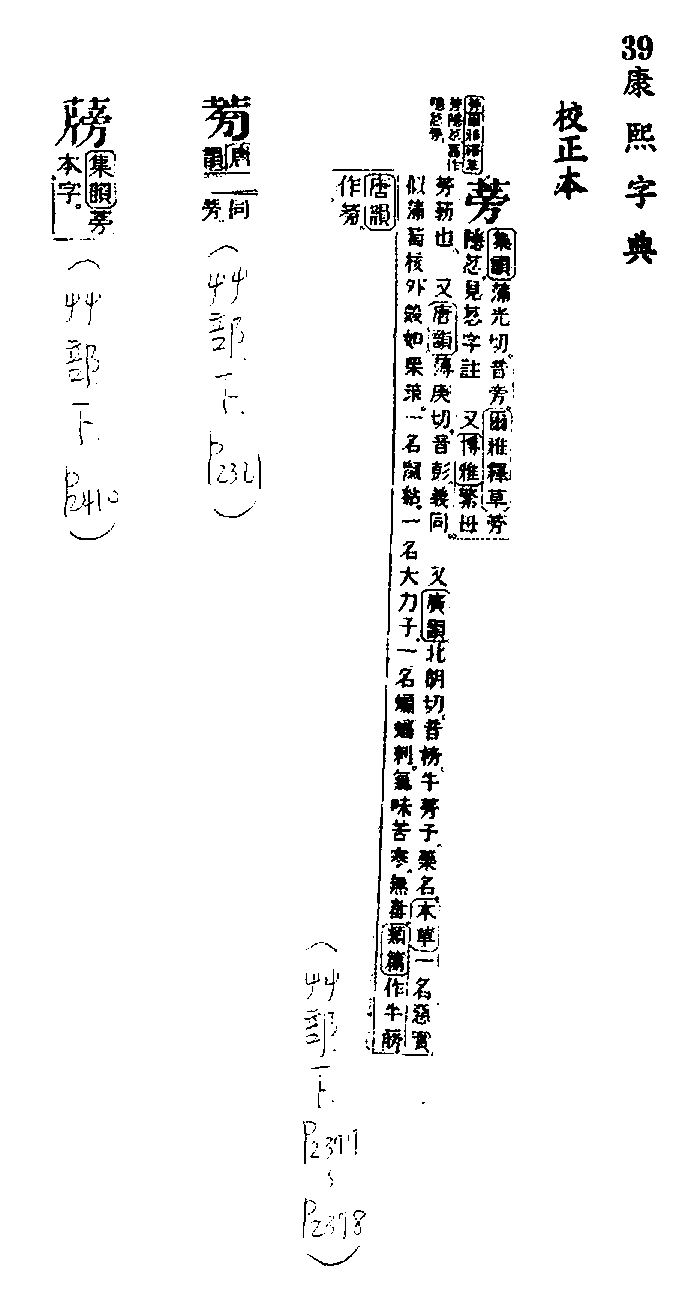 39康熙字典
校正本
蒡
集韻蒲光切音旁爾雅釋草蒡
隱荵見荵字註 又博雅繁母
蒡葧也 又唐韻薄庚切音彭義同 又廣韻北朗切音榜牛蒡子藥名本草一名惡實
似蒲萄核外殼如栗梂一名鼠黏一名大力子一名蝙蝠刺氣味苦寒無毒類篇作牛蒡
唐韻
作蒡
(艸部下P2377~P2378)
唐韻
同蒡
(艸部下
集韻蒡
本字。
(艸部下P2410)